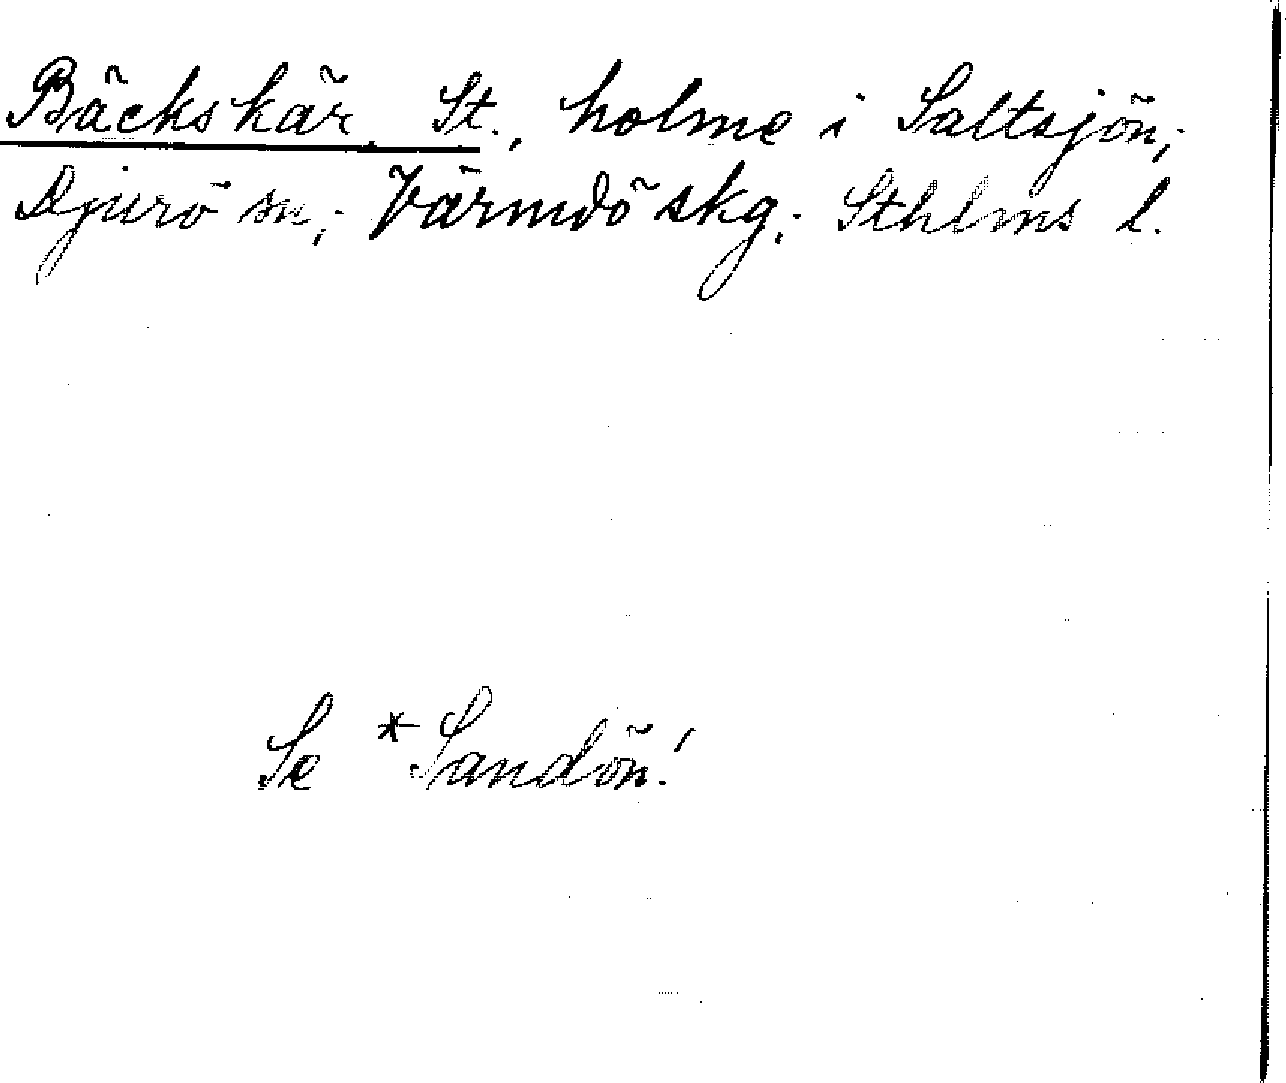 Bäckskär, St., holme i Saltsjön;
Djurö sn; Värmdö skg; Sthlms l.
Se *Sandön!